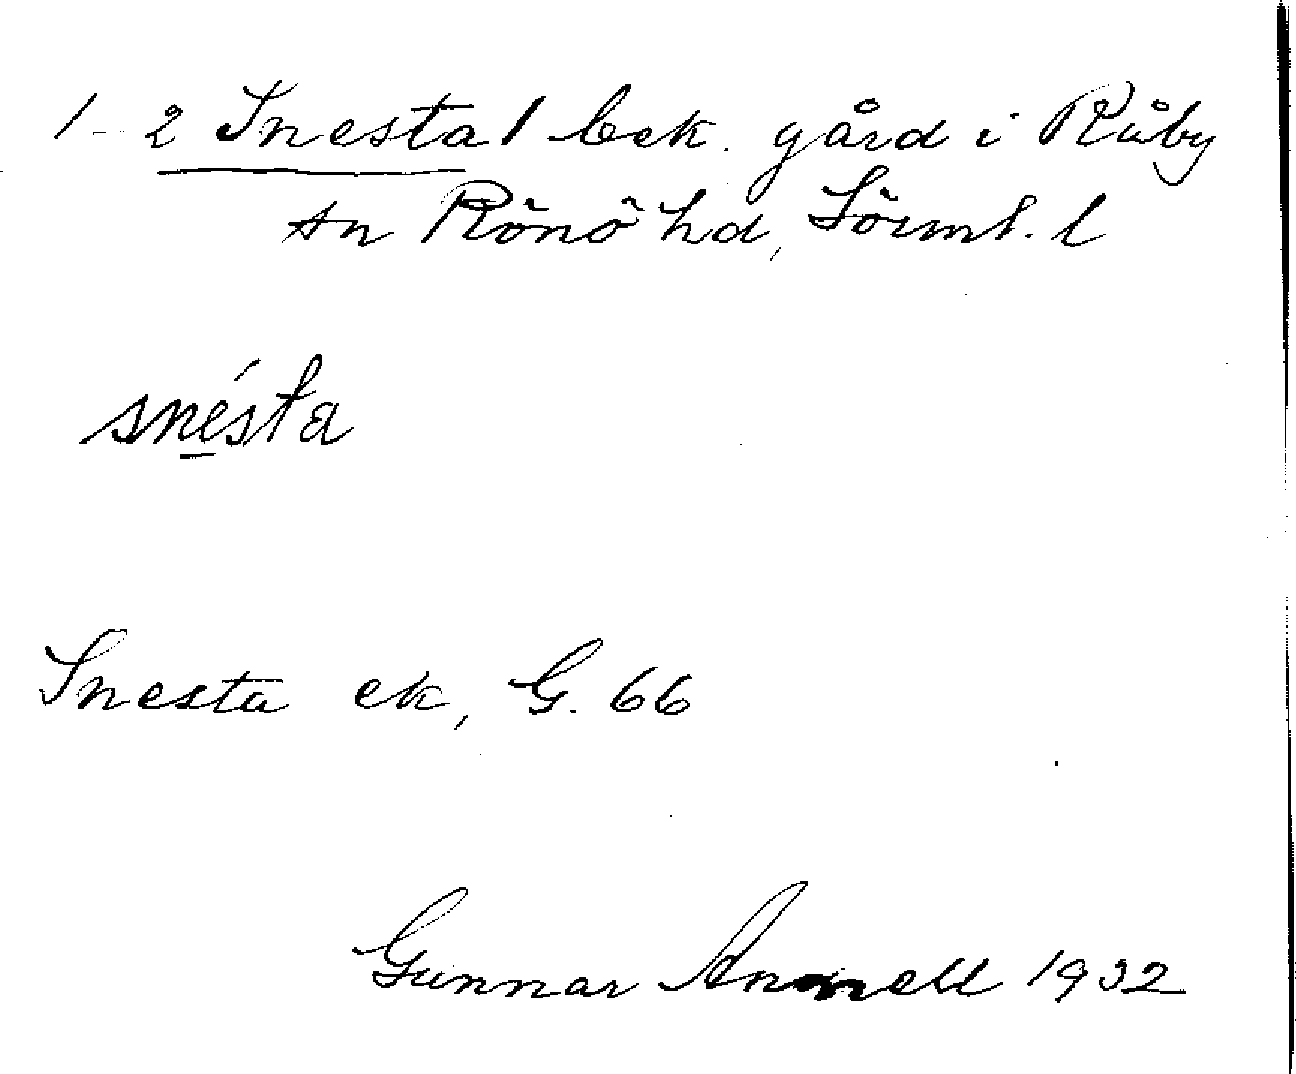 1-2 Snesta / bek. gård i Råby
sn Rönö hd, Sörml. l
snésta
Snesta ek, G. 66
Gunnar Annell 1932